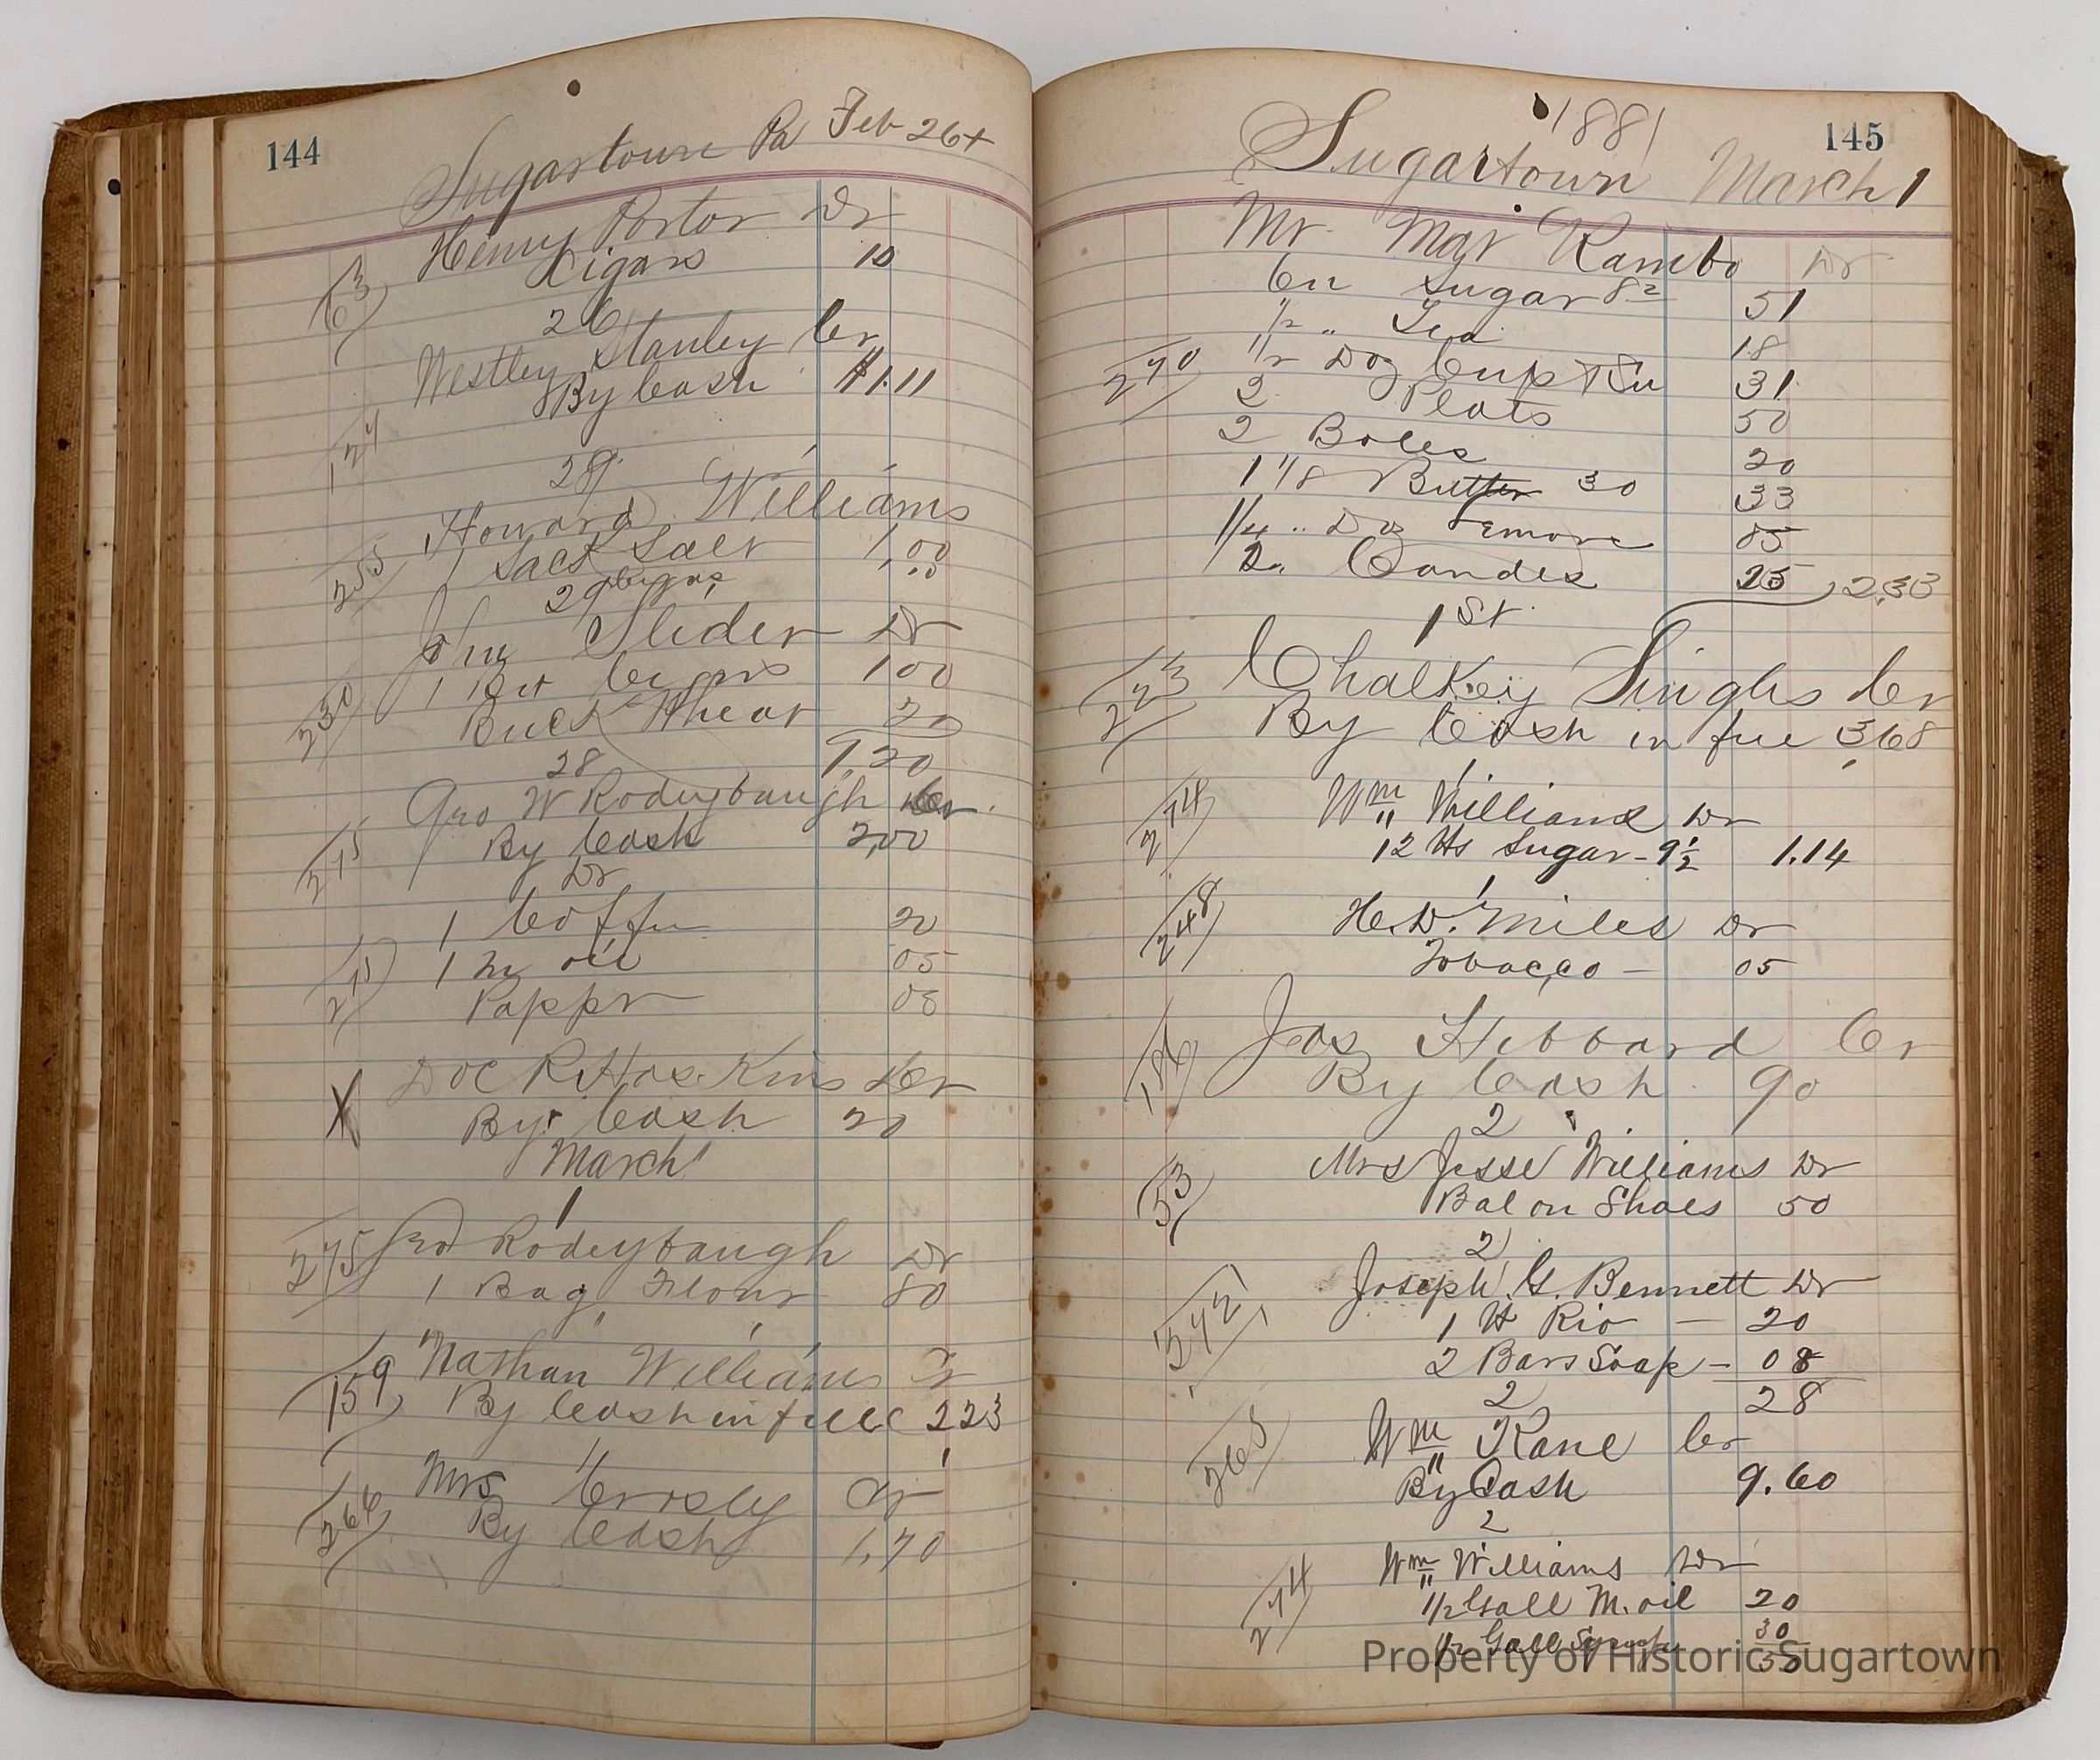 144
Sugartown Pa Feb 26+
Henry Portor Dr
63 Cigars 10
26
Westley Stanley Cr
By Cash $1.11
124
28
Howard Williams
255 1 Sack Salt 1,00
29
Slider Dr
1 Box Cigars 100
230 Buck Wheat 20
28 1,20
Geo W Rodeybaugh Cr
275 By Cash 2,00
Dr
1 Coffee 20
275 1 oil 05
Pappr 08
Doc R Hoskins Cr
X By Cash 20
March
1
275 Geo Rodeybaugh Dr
1 Bag Flour 80
1
159 Nathan Williams Cr
By Cash in full 223
1
266 Mrs Crosly Cr
By Cash 1,70
1881
145
Sugartown March 1
Mr Rambo Dr
6 Sugar 8½ 51
½ " Tea 18
270 ½ Doz Cup 31
2 Plats 50
2 Boles 20
1 1/8 Butter 30 33
1/4 " Doz 05
2 Candes 25 2.33
1 St
223 Chalkey Singles Cr
By Cash in fue 368
1
274 Wm Williams Dr
12 lbs Sugar - 9½ 1.14
1
248 H.D. Miles Dr
Tobacco - 05
186 Jos Hibbard Cr
By Cash 90
2
53 Mrs Jesse Williams Dr
Bal on Shoes 50
2
242 Joseph G. Bennett Dr
1 lb Rio - 20
2 Bars Soap - 08
2 28
265 Wm Kane Cr
By Cash 9.60
2
274 Wm Williams Dr
1/2 Gall M. oil 20
1/2 Gall Syrup 30
50
Property of Historic Sugartown